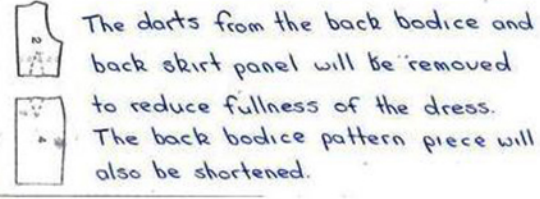 The darts from the back bodice and
back skirt panel will be removed
to reduce fullness of the dress.
The back bodice pattern piece will
also be shortened.
2
4